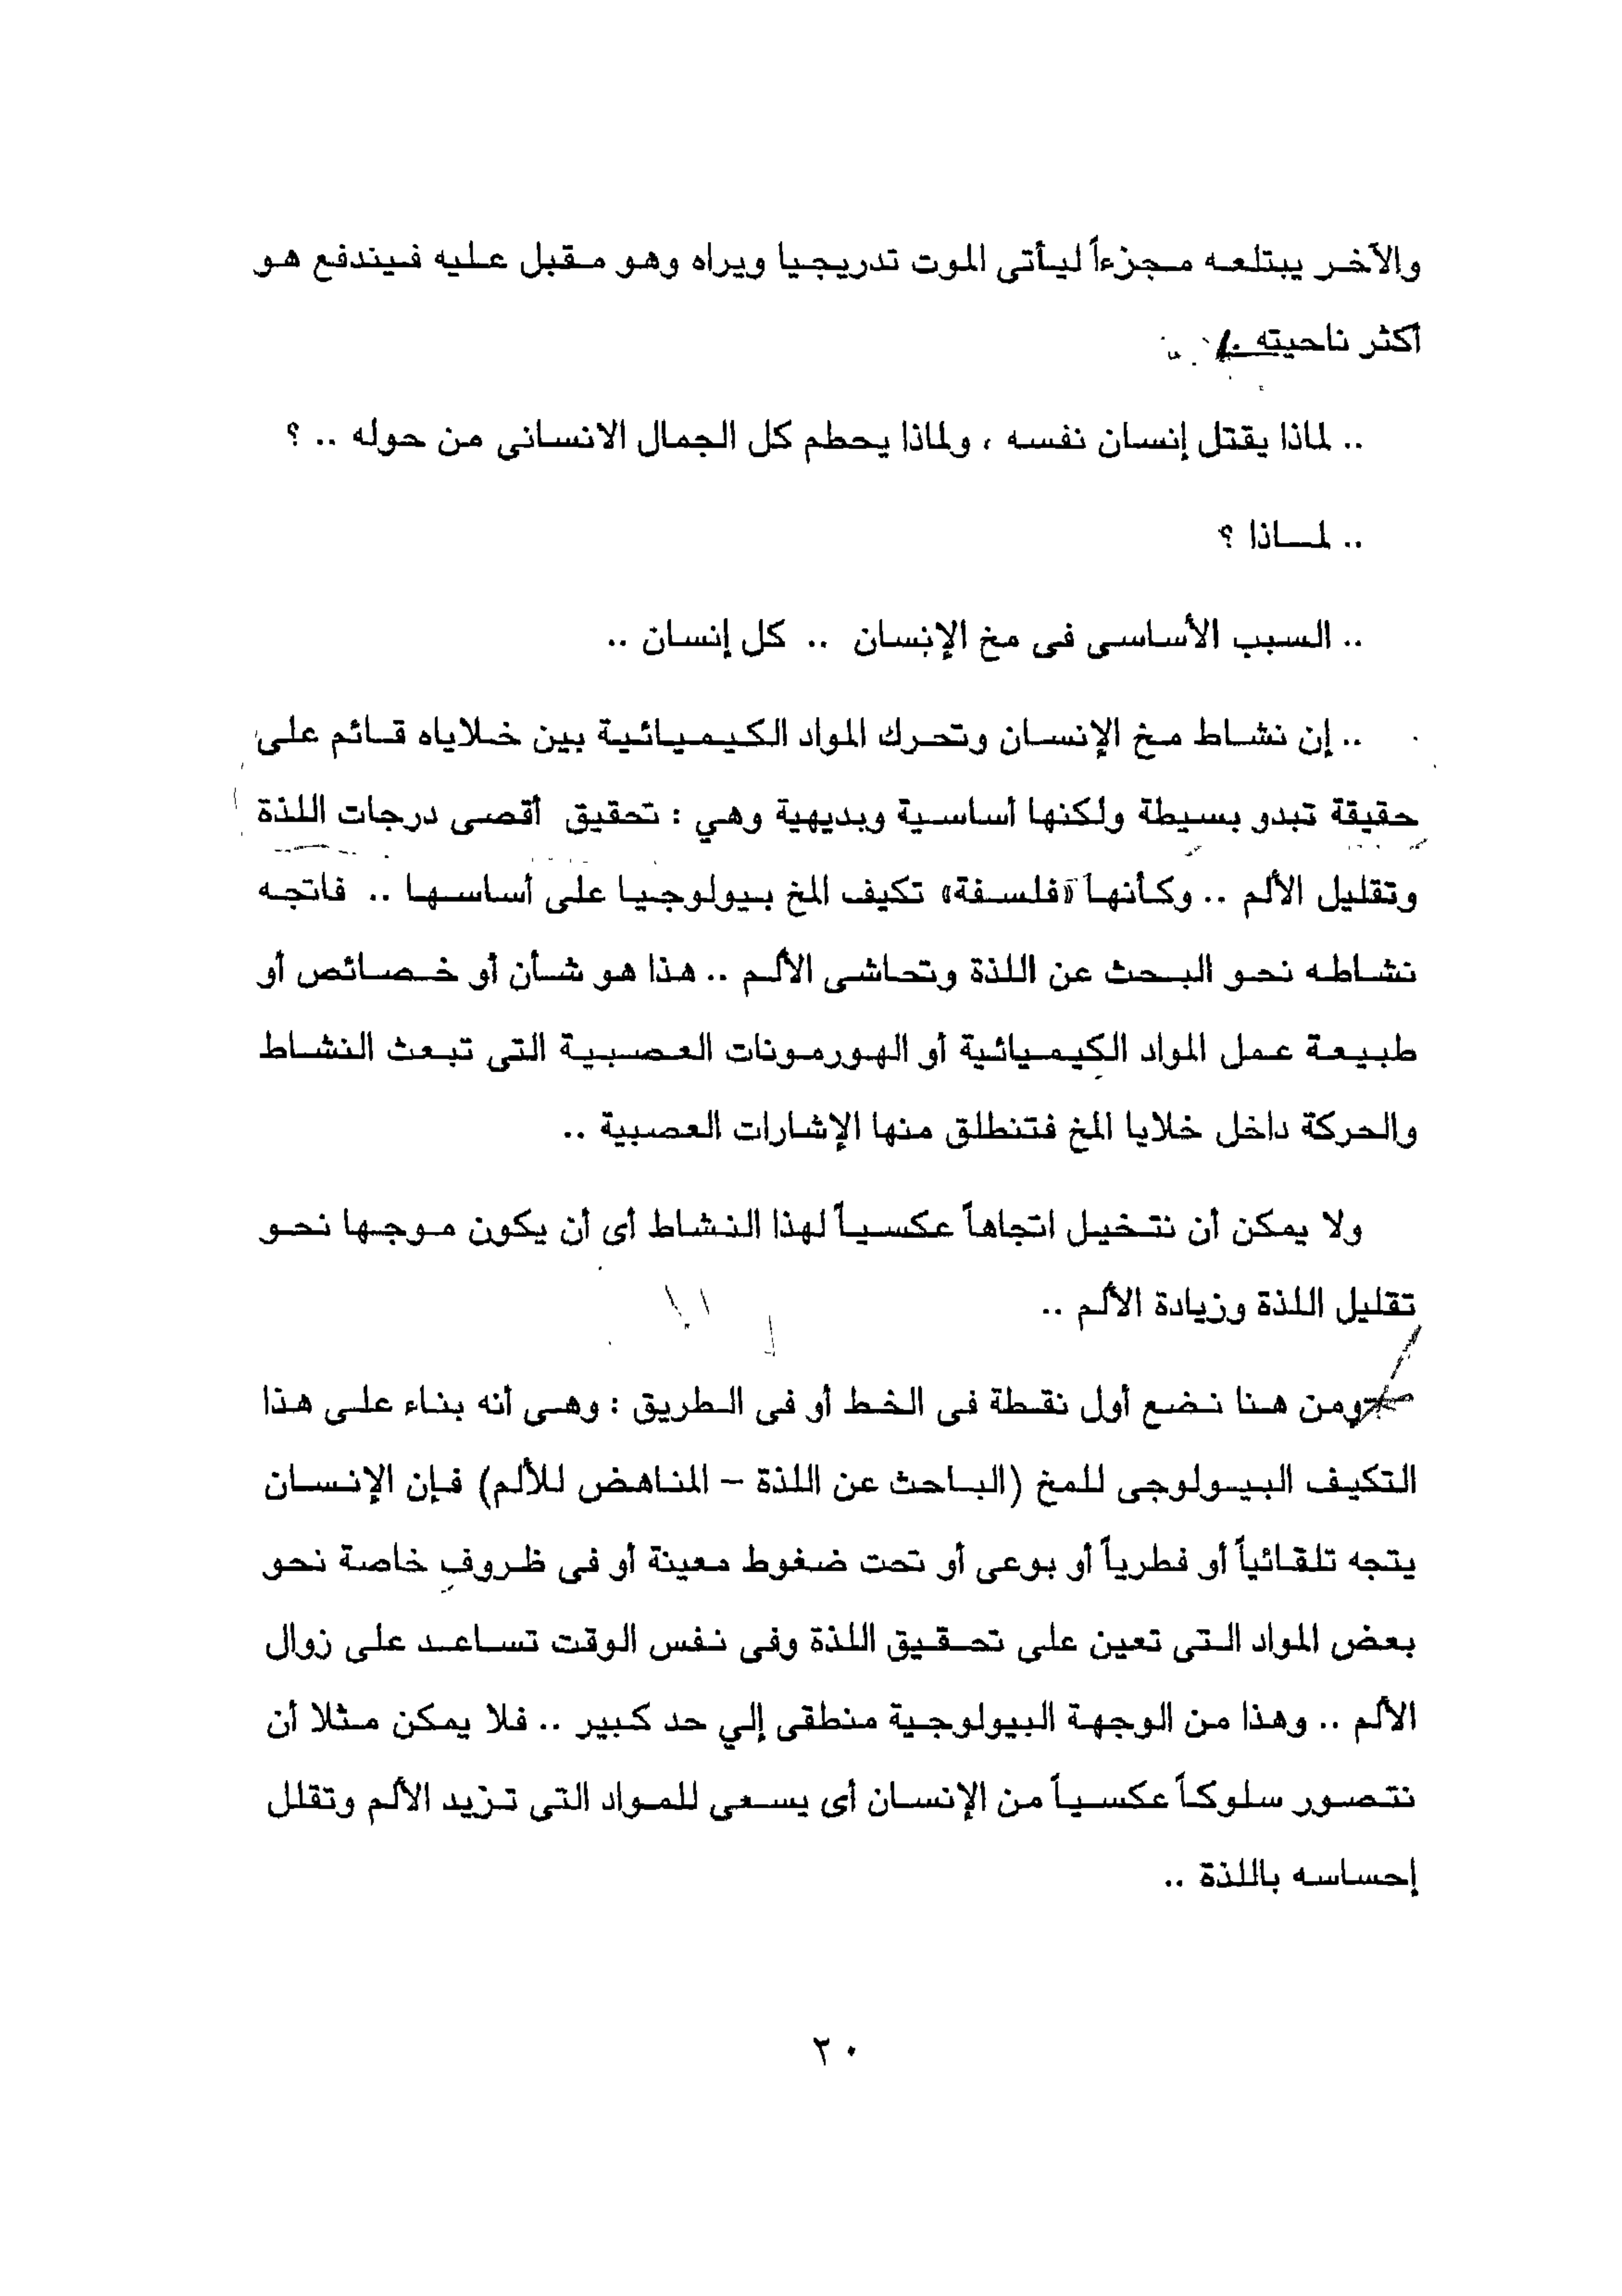 والآخر يبتلعه مجزءاً ليأتى الموت تدريجيا ويراه وهو مقبل عليه فيندفع هو
أكثر ناحيته ..
.. لماذا يقتل إنسان نفسه ، ولماذا يحطم كل الجمال الانسانى من حوله .. ؟
.. لماذا ؟
.. السبب الأساسى فى مخ الإنسان .. كل إنسان ..
.. إن نشاط مخ الإنسان وتحرك المواد الكيميائية بين خلاياه قائم على
حقيقة تبدو بسيطة ولكنها أساسية وبديهية وهي : تحقيق أقصى درجات اللذة
وتقليل الألم .. وكأنها «فلسفة» تكيف المخ بيولوجيا على أساسها .. فاتجه
نشاطه نحو البحث عن اللذة وتحاشى الألم .. هذا هو شأن أو خصائص أو
طبيعة عمل المواد الكيميائية أو الهورمونات العصبية التى تبعث النشاط
والحركة داخل خلايا المخ فتنطلق منها الإشارات العصبية ..
ولا يمكن أن نتخيل اتجاهاً عكسياً لهذا النشاط أى أن يكون موجها نحو
تقليل اللذة وزيادة الألم ..
ومن هنا نضع أول نقطة فى الخط أو فى الطريق : وهى أنه بناء على هذا
التكيف البيولوجى للمخ (الباحث عن اللذة – المناهض للألم) فإن الإنسان
يتجه تلقائياً أو فطرياً أو بوعى أو تحت ضغوط معينة أو فى ظروف خاصة نحو
بعض المواد التى تعين على تحقيق اللذة وفى نفس الوقت تساعد على زوال
الألم .. وهذا من الوجهة البيولوجية منطقى إلي حد كبير .. فلا يمكن مثلا أن
نتصور سلوكاً عكسياً من الإنسان أى يسعى للمواد التى تزيد الألم وتقلل
إحساسه باللذة ..
٢٠